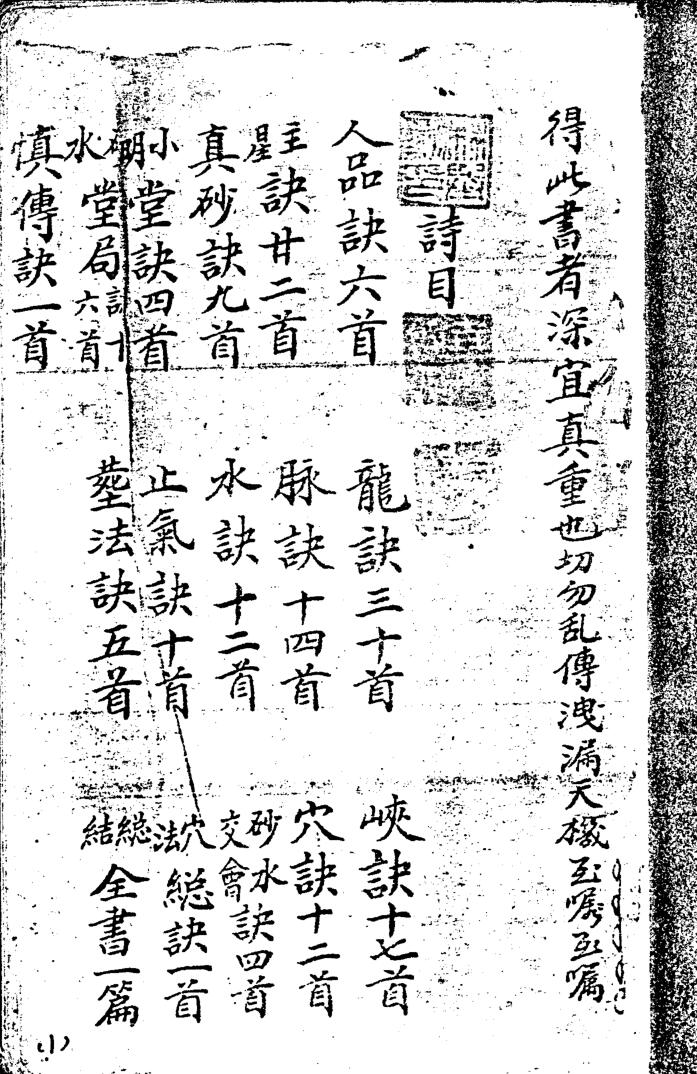 得此書者深宜真重也切勿乱傳洩漏天機至嘱至嘱
詩目
人品訣六首 龍訣三十首 峽訣十七首
主星訣廿二首 脉訣十四首 穴訣十二首
真砂訣九首 水訣十二首 砂水交會訣四首
小明堂訣四首 止氣訣十首 穴法総訣一首
水堂局六首 塟法訣五首 総結全書一篇
慎傳訣一首
(1)